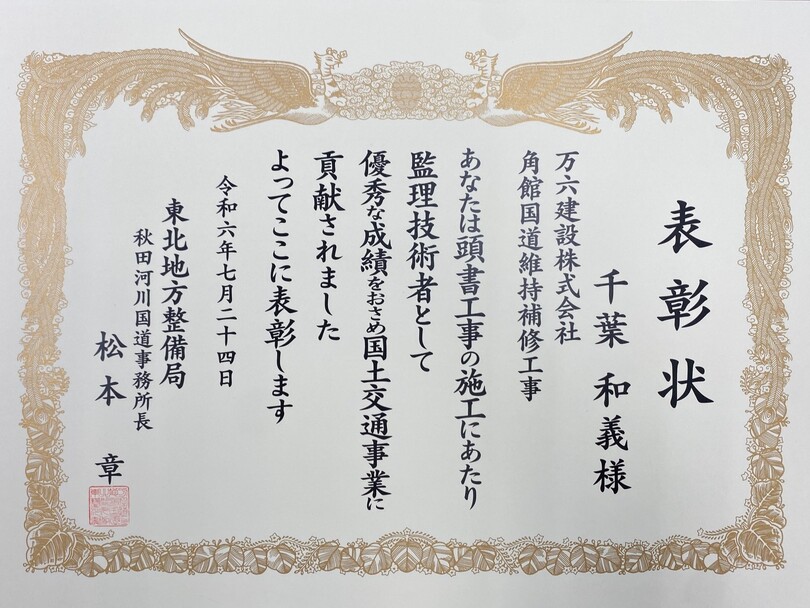 表彰状
千葉 和義様
万六建設株式会社
角館国道維持補修工事
あなたは頭書工事の施工にあたり
監理技術者として
優秀な成績をおさめ国土交通事業に
貢献されました
よってここに表彰します
令和六年七月二十四日
東北地方整備局
秋田河川国道事務所長
松本 章